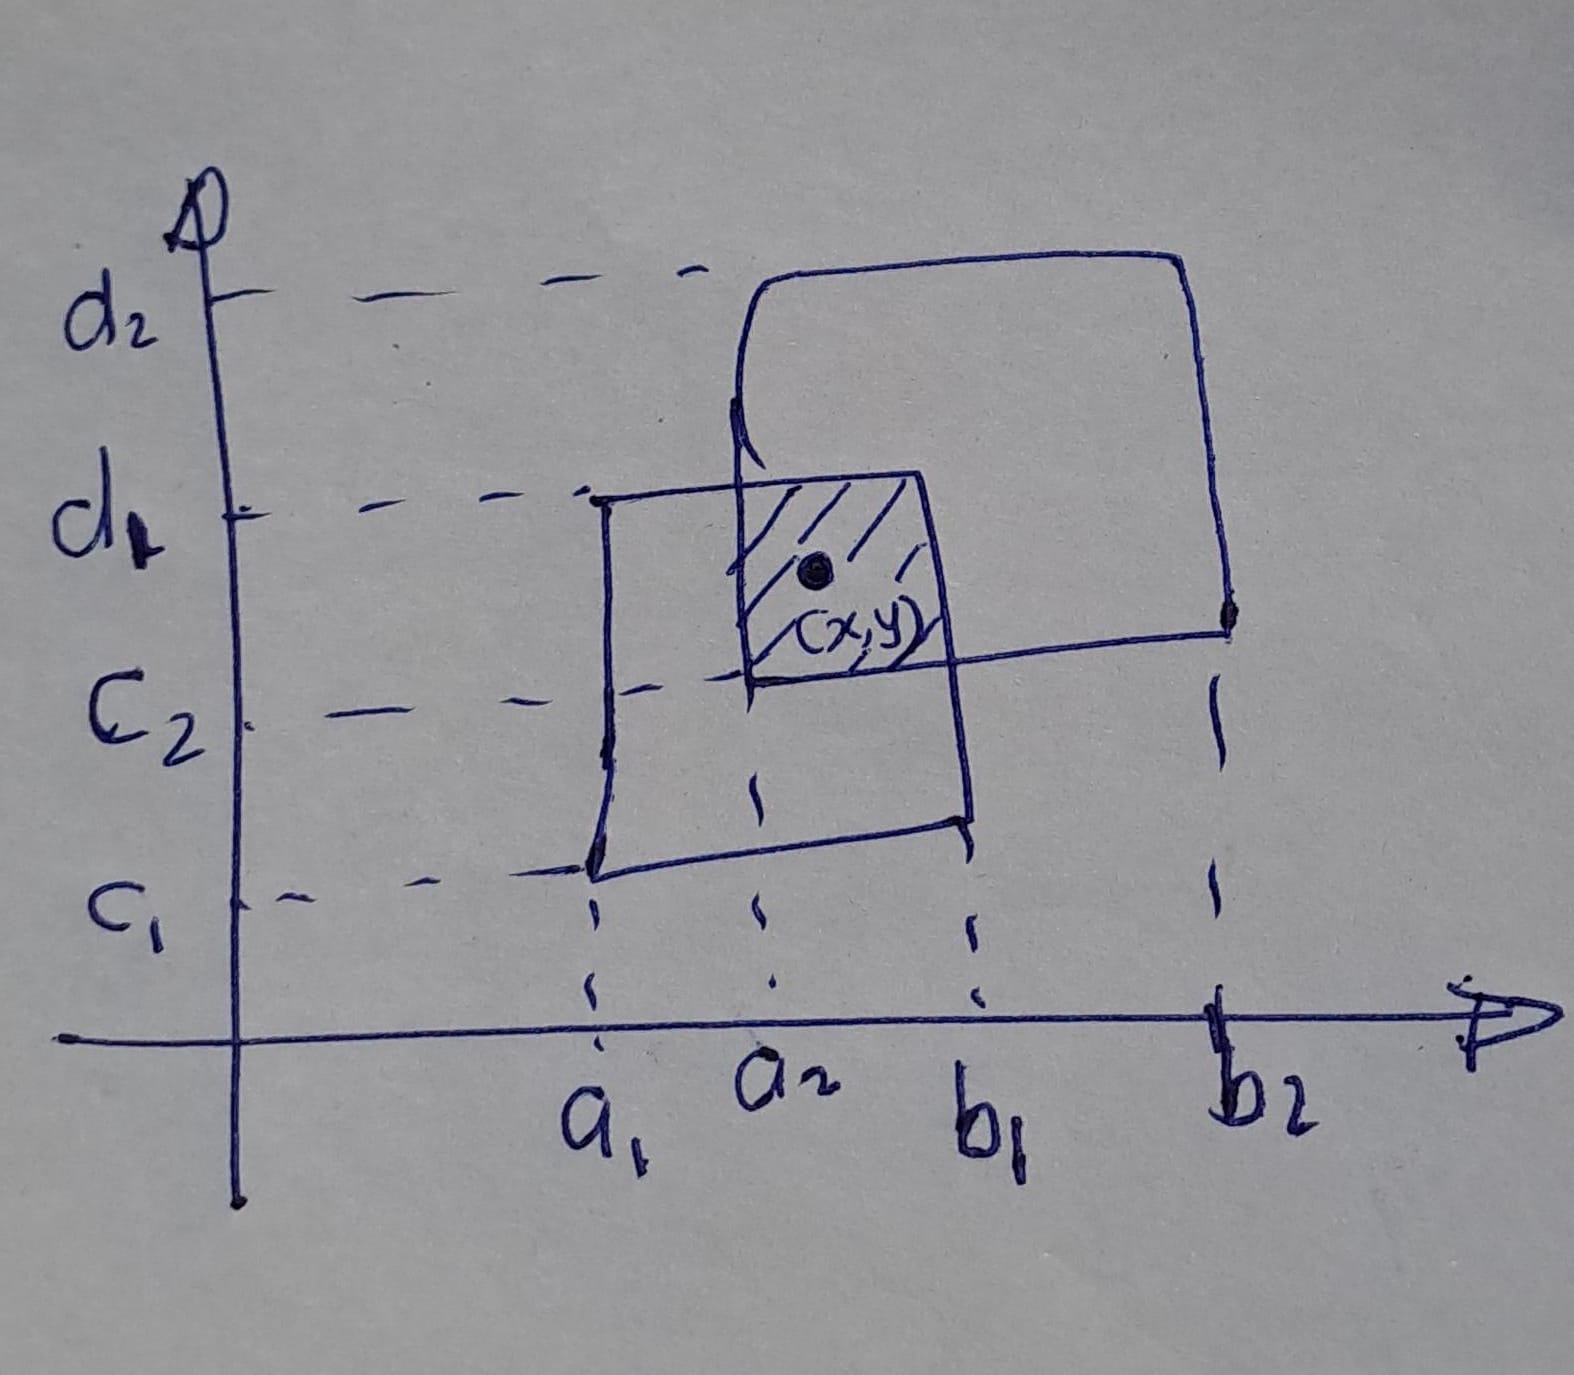 d₂
d₁
(x,y)
C₂
C₁
a₁ a₂ b₁ b₂